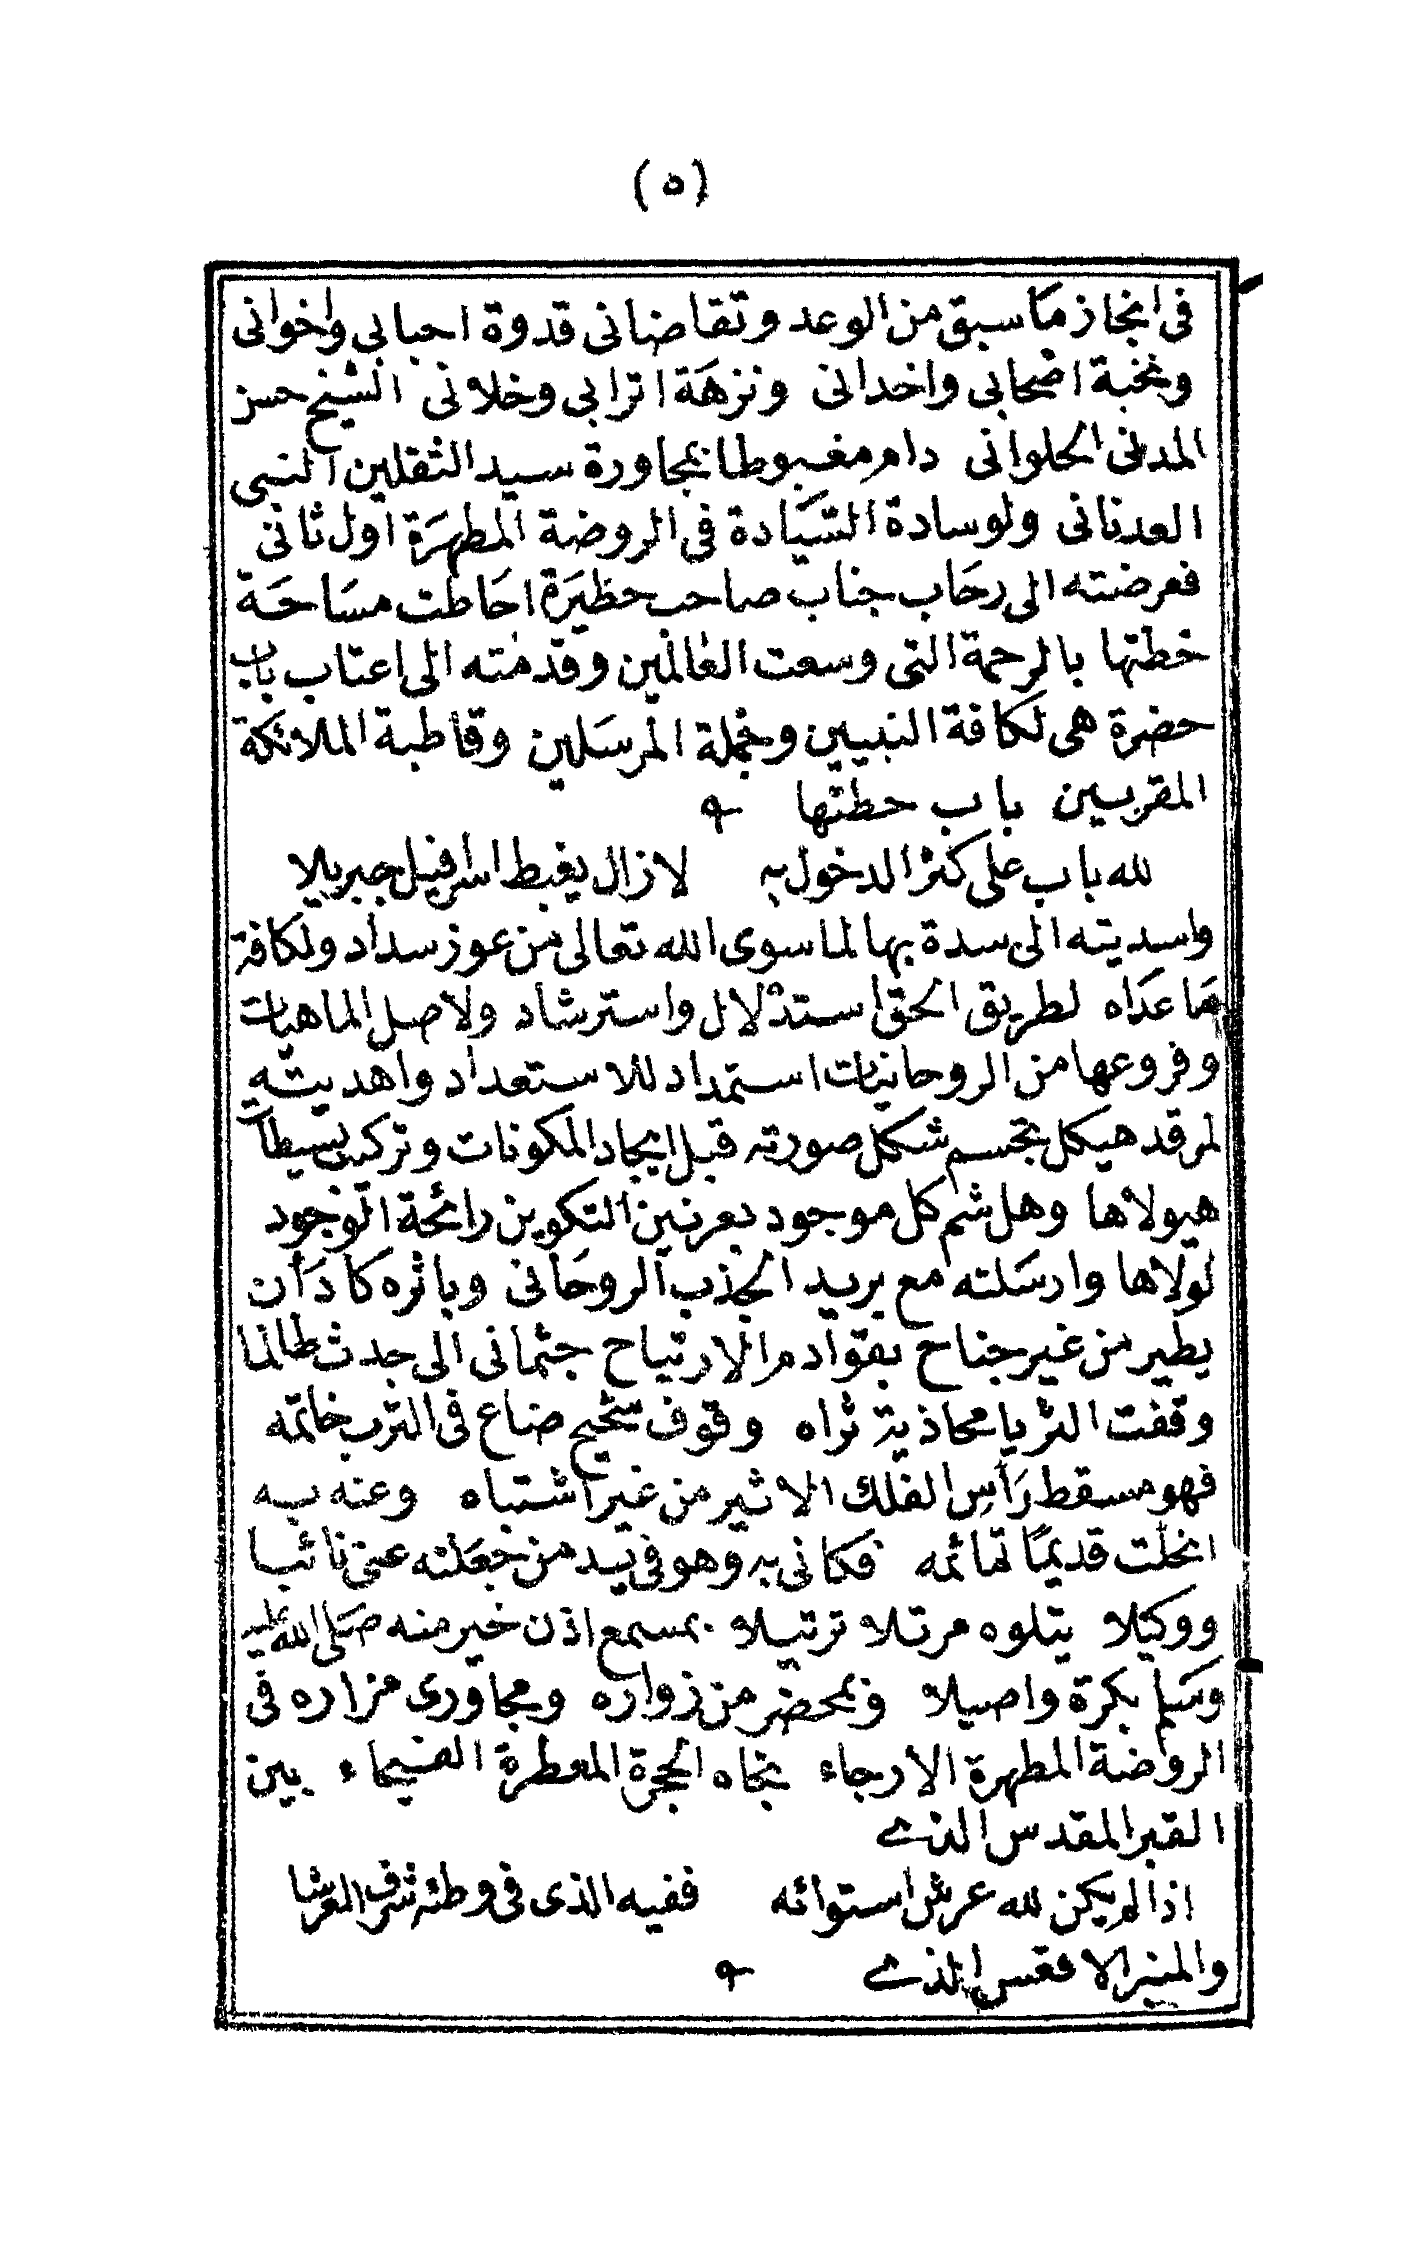 (٥)
فى انجاز ما سبق من الوعد وتقاضانى قدوة احبابى واخوانى
ونخبة اصحابى واخدانى ونزهة اترابى وخلانى الشيخ حسن
المدنى الحلوانى دام مغبوطا بمجاورة سيد الثقلين النبى
العدنانى ولوسادة السيادة فى الروضة المطهرة اول ثانى
فعرضته الى رحاب جناب صاحب حظيرة احاطت مساحة
خطتها بالرحمة التى وسعت العالمين وقدمته الى اعتاب باب
حضرة هى لكافة النبيين وجملة المرسلين وقاطبة الملائكة
المقربين باب حطتها
لله باب على كثر الدخول به لازال يغبط اسرافيل جبريلا
واسديته الى سدة بها لما سوى الله تعالى من عوز سداد ولكافة
ما عداه لطريق الحق استدلال واسترشاد ولاصل الماهيات
وفروعها من الروحانيات استمداد للاستعداد واهديته
لمرقد هيكل تجسم شكل صورته قبل ايجاد المكونات وتركيب بسيط
هيولاها وهل شم كل موجود بعرنين التكوين رائحة الوجود
لولاها وارسلته مع بريد الجذب الروحانى وباثره كاد أن
يطير من غير جناح بقوادم الارتياح جثمانى الى جدث طالما
وقفت الثريا محاذية ثراه وقوف شحيح ضاع فى الترب خاتمه
فهو مسقط رأس الفلك الاثير من غير اشتباه وعنه به
انحلت قديما تمائمه فكانى به وهو فى يد من جعلته عنى نائبا
ووكيلا يتلوه مرتلا ترتيلا بمسمع اذن خير منه صلى الله عليه
وسلم بكرة واصيلا وبمحضر من زواره ومجاورى مزاره فى
الروضة المطهرة الارجاء تجاه الحجرة المعطرة الفيحاء بين
القبر المقدس الذى
اذا لم يكن لله عرش استوائه ففيه الذى فى وطئه شرف العرشا
والمنبر الاقعس الذى